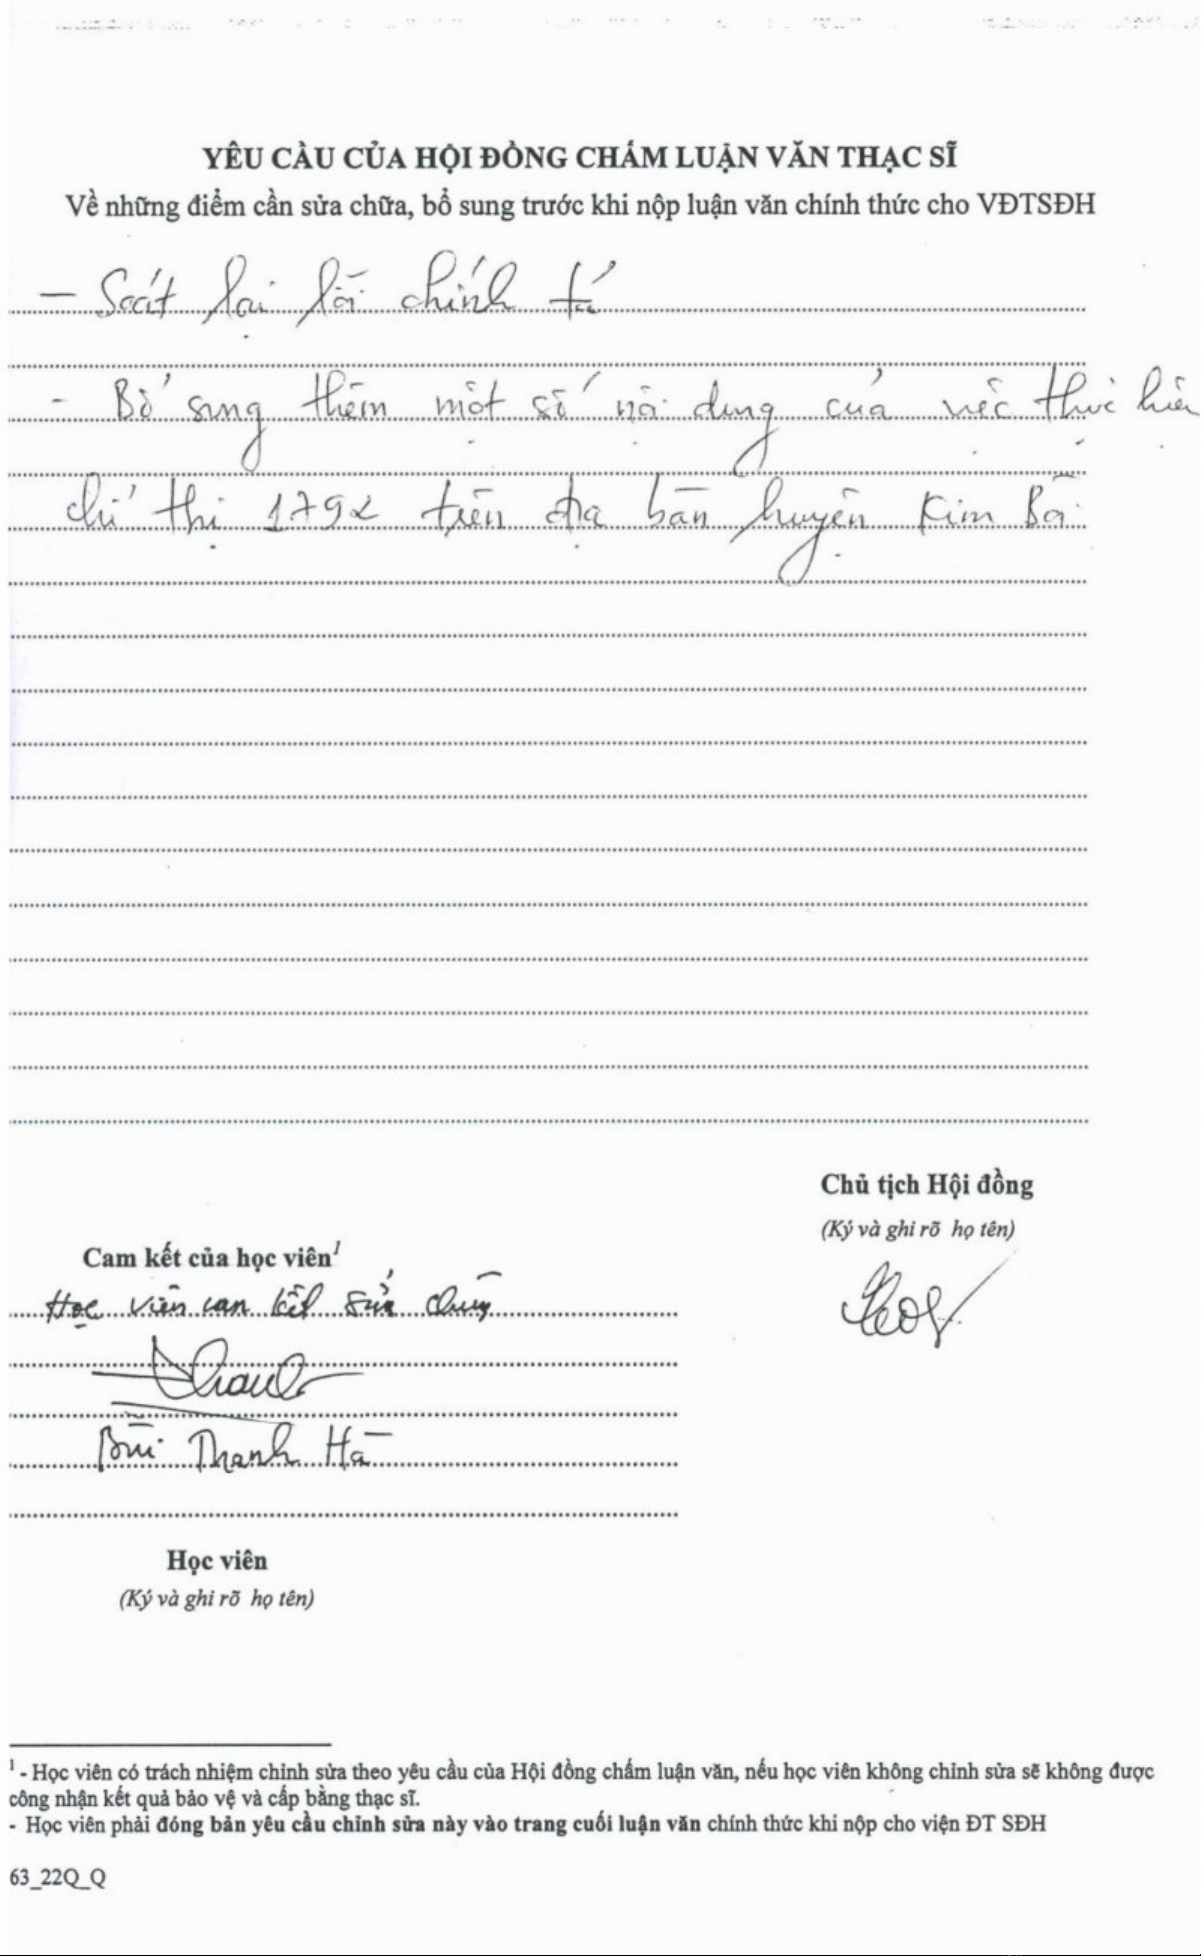 YÊU CẦU CỦA HỘI ĐỒNG CHẤM LUẬN VĂN THẠC SĨ
Về những điểm cần sửa chữa, bổ sung trước khi nộp luận văn chính thức cho VĐTSĐH
- Soát lại lỗi chính tả
- Bổ sung thêm một số nội dung của việc thực hiện
chỉ thị 1792 trên địa bàn huyện Kim Bôi
Chủ tịch Hội đồng
(Ký và ghi rõ họ tên)
Cam kết của học viên¹
Học viên cam kết sửa chữa
Bùi Thanh Hà
Học viên
(Ký và ghi rõ họ tên)
¹ - Học viên có trách nhiệm chỉnh sửa theo yêu cầu của Hội đồng chấm luận văn, nếu học viên không chỉnh sửa sẽ không được
công nhận kết quả bảo vệ và cấp bằng thạc sĩ.
- Học viên phải đóng bản yêu cầu chỉnh sửa này vào trang cuối luận văn chính thức khi nộp cho viện ĐT SĐH
63_22Q_Q